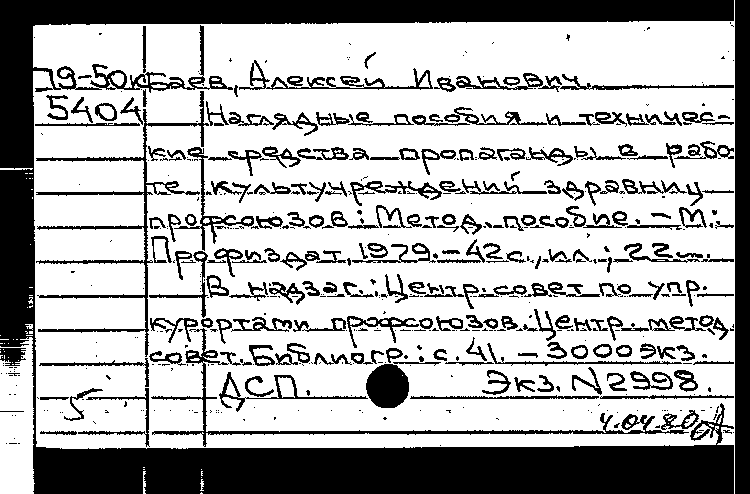 79-50к Баев, Алексей Иванович.
5404 Наглядные пособия и техничес-
кие средства пропаганды в рабо-
те культучреждений здравниц
профсоюзов: Метод. пособие. - М.:
Профиздат, 1979. - 42 с., ил.; 22 см.
В надзаг.: Центр. совет по упр.
курортами профсоюзов. Центр. метод.
совет. Библиогр.: с. 41. - 3000 экз.
ДСП. Экз. N 2998.
5
4.04.80